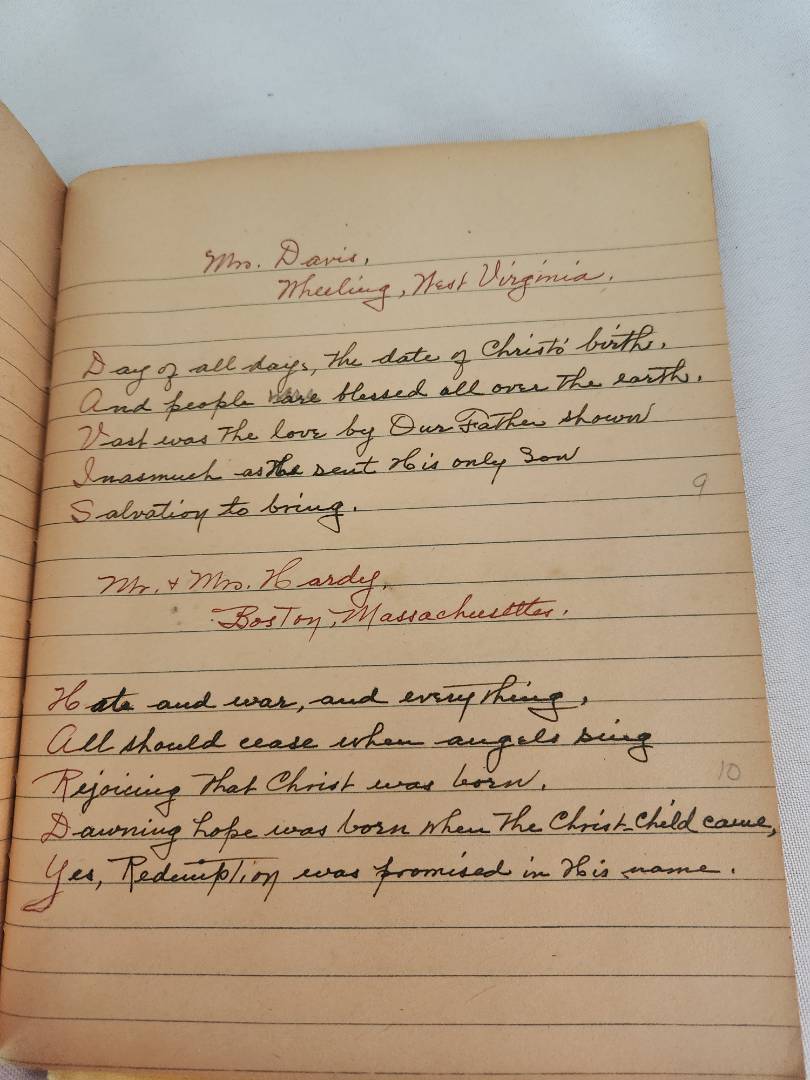 Mrs. Davis,
Wheeling, West Virginia.
Day of all days, the date of Christs' birth.
And people are blessed all over the earth.
Vast was the love by Our Father shown
Inasmuch as He sent His only Son
9
Salvation to bring.
Mr. & Mrs. Hardy,
Boston, Massachusetts.
Hate and war, and everything,
All should cease when angels sing
Rejoicing that Christ was born.
10
Dawning hope was born when the Christ-Child came,
Yes, Redemption was promised in His name.